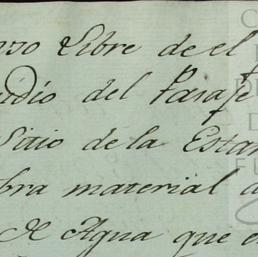 Libre de el
del Parage
Sitio de la Estan
bra material d
Agua que e